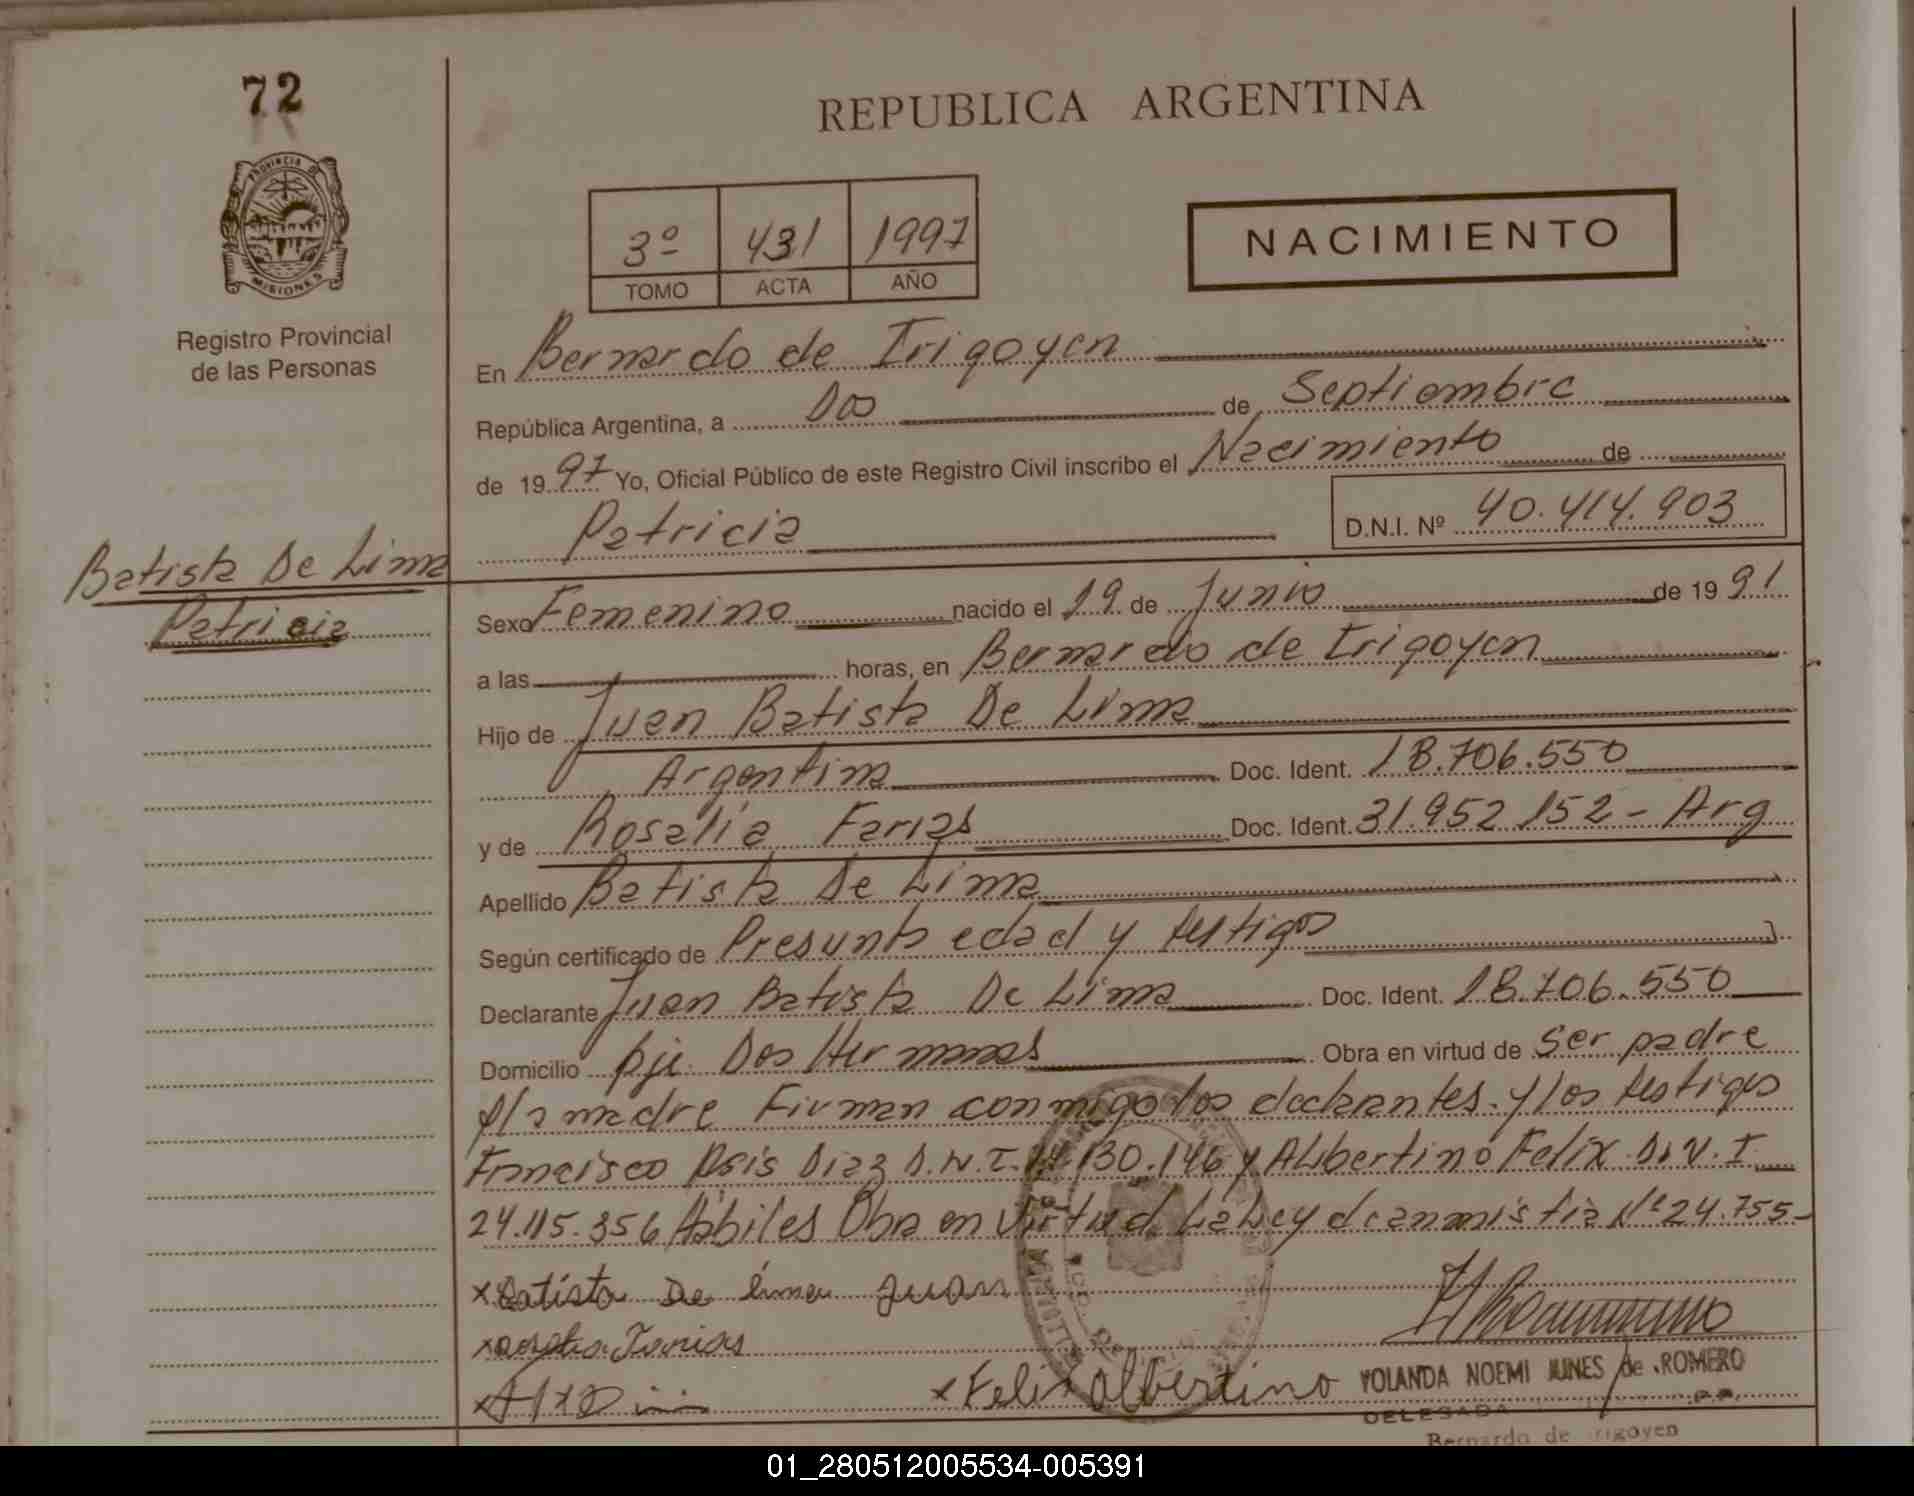 72
REPUBLICA ARGENTINA
PROVINCIA DE
MISIONES
Registro Provincial
de las Personas
3º 431 1997
TOMO ACTA AÑO
NACIMIENTO
En Bernardo de Irigoyen
República Argentina, a Dos de Septiembre
de 1997 Yo, Oficial Público de este Registro Civil inscribo el Nacimiento de
Patricia
D.N.I. Nº 40.414.903
Batista De Lima
Patricia
Sexo Femenino nacido el 19 de Junio de 1991
a las horas, en Bernardo de Irigoyen
Hijo de Juan Batista De Lima
Argentina Doc. Ident. 18.706.550
y de Rosalia Farias Doc. Ident. 31.952.152 - Arg
Apellido Batista De Lima
Según certificado de Presunta edad y testigos
Declarante Juan Batista De Lima Doc. Ident. 18.706.550
Domicilio pje. Dos Hermanas Obra en virtud de ser padre
y la madre Firman conmigo los declarantes. y los testigos
Francisco Diaz D.N.I. 14.130.146 y Albertino Felix D.N.I.
24.115.356 Habiles Obra en Virtud La Ley de amnistia Nº 24.755-
x Batista De Lima Juan
x Farias
x Felix Albertino
YOLANDA NOEMI de ROMERO
DELEGADA
Bernardo de Irigoyen
01_280512005534-005391